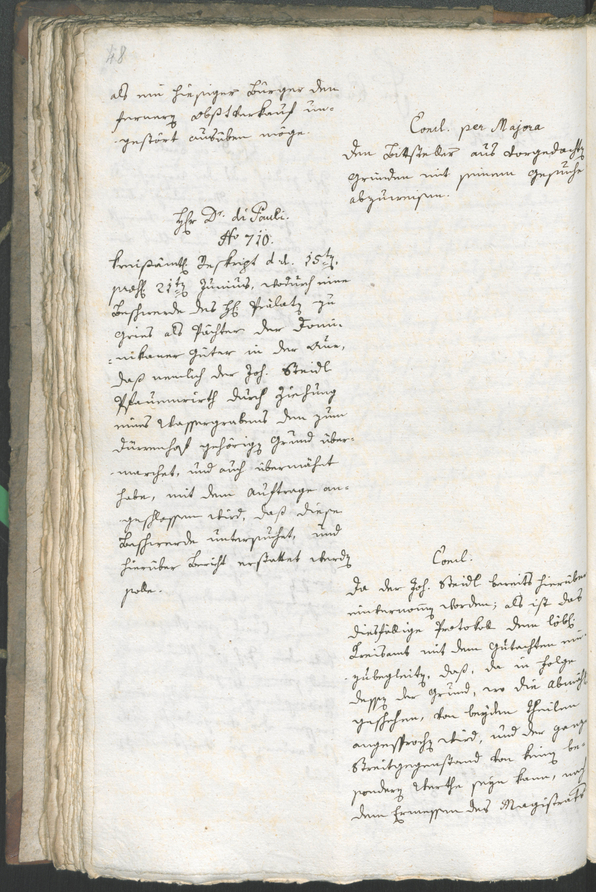 48
als ein hiesiger Bürger den
fernern Obstverkauf un-
gestört ausüben möge.
Concl. per Majora
den Bittsteller aus vorgedachten
Gründen mit seinem Gesuche
abzuweisen.
Hr Dr. di Pauli.
No 710.
Kreisämtl. Reskript dd. 15ten,
praes. 21ten Junius, wodurch eine
Beschwerde des H. Prälaten zu
Gries als Pächter der Domi-
nikaner Güter in der Aue,
daß nemlich der Joh. Steidl
Pfauenwirth durch Ziehung
eines Wassergrabens den zum
Dürrenhof gehörigen Grund über-
marchet, und auch übermähet
habe, mit dem Auftrage an-
geschlossen wird, daß diese
Beschwerde untersuchet, und
hierüber Bericht erstattet werden
solle.
Concl.
Da der Joh. Steidl bereits hierüber
einvernommen worden; als ist das
diesfällige Protokoll dem löbl.
Kreisamte mit dem Gutachten ein-
zubegleiten, daß, da in Folge
dessen der Grund, wo die Abmähung
geschehen, von beyden Theilen
angesprochen wird, und der ganze
Streitgegenstand von keinem be-
sondern Werthe seyn kann, nach
dem Ermessen des Magistrats